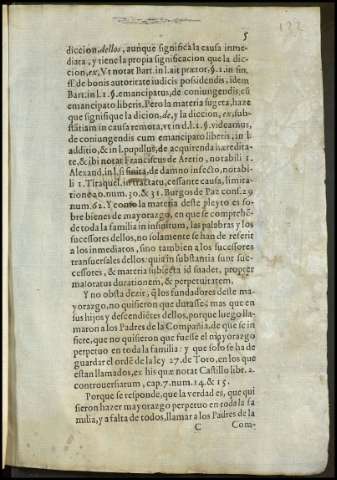 132
5
diccion, dellos, aunque significa la causa inme-
diata, y tiene la propia significacion que la dic-
cion, ex, Vt notat Bart. in l. ait prætor. §. 1. in fin.
ff. de bonis autoritate iudicis posidendis, idem
Bart. in l. 1. §. emancipatus, de coniungendis, cũ
emancipato liberis. Pero la materia sugeta, haze
que signifique la dicion, de, y la diccion, ex, sub-
stãtiam in causa remota, vt in d. l. 1. §. videamus,
de coniungendis cum emancipato liberis, in l.
additio, & in l. pupillus, de acquirenda hæredita-
te, & ibi notat Franciscus de Aretio, notabili 1.
Alexand. in l. si finita, de damno infecto, notabi-
li 1. Tiraquel. in tractatu, cessante causa, limita-
tione 20. num. 30. & 31. Burgos de Paz conf. 29
num. 62. Y como la materia deste pleyto es so-
bre bienes de mayorazgo, en que se comprehẽ-
de toda la familia in infinitum, las palabras y los
successores dellos, no solamente se han de referir
a los inmediatos, sino tambien a los successores
transuersales dellos: quia in substantia sunt suc-
cessores, & materia subiecta id suadet, propter
maioratus durationem, & perpetuitatem.
Y no obsta dezir, q̃ los fundadores deste ma-
yorazgo, no quisieron que durasse, mas que en
sus hijos y descendiẽtes dellos, porque luego lla-
maron a los Padres de la Compañia, de que se in
fiere, que no quisieron que fuesse el mayorazgo
perpetuo en toda la familia: y que solo se ha de
guardar el ordẽ de la ley 27. de Toro, en los que
estan llamados, ex his quæ notat Castillo libr. 2.
controuersiarum, cap. 7. num. 14. & 15.
Porque se responde, que la verdad es, que qui
sieron hazer mayorazgo perpetuo en toda la fa
milia, y a falta de todos, llamar a los Padres de la
C
Com-